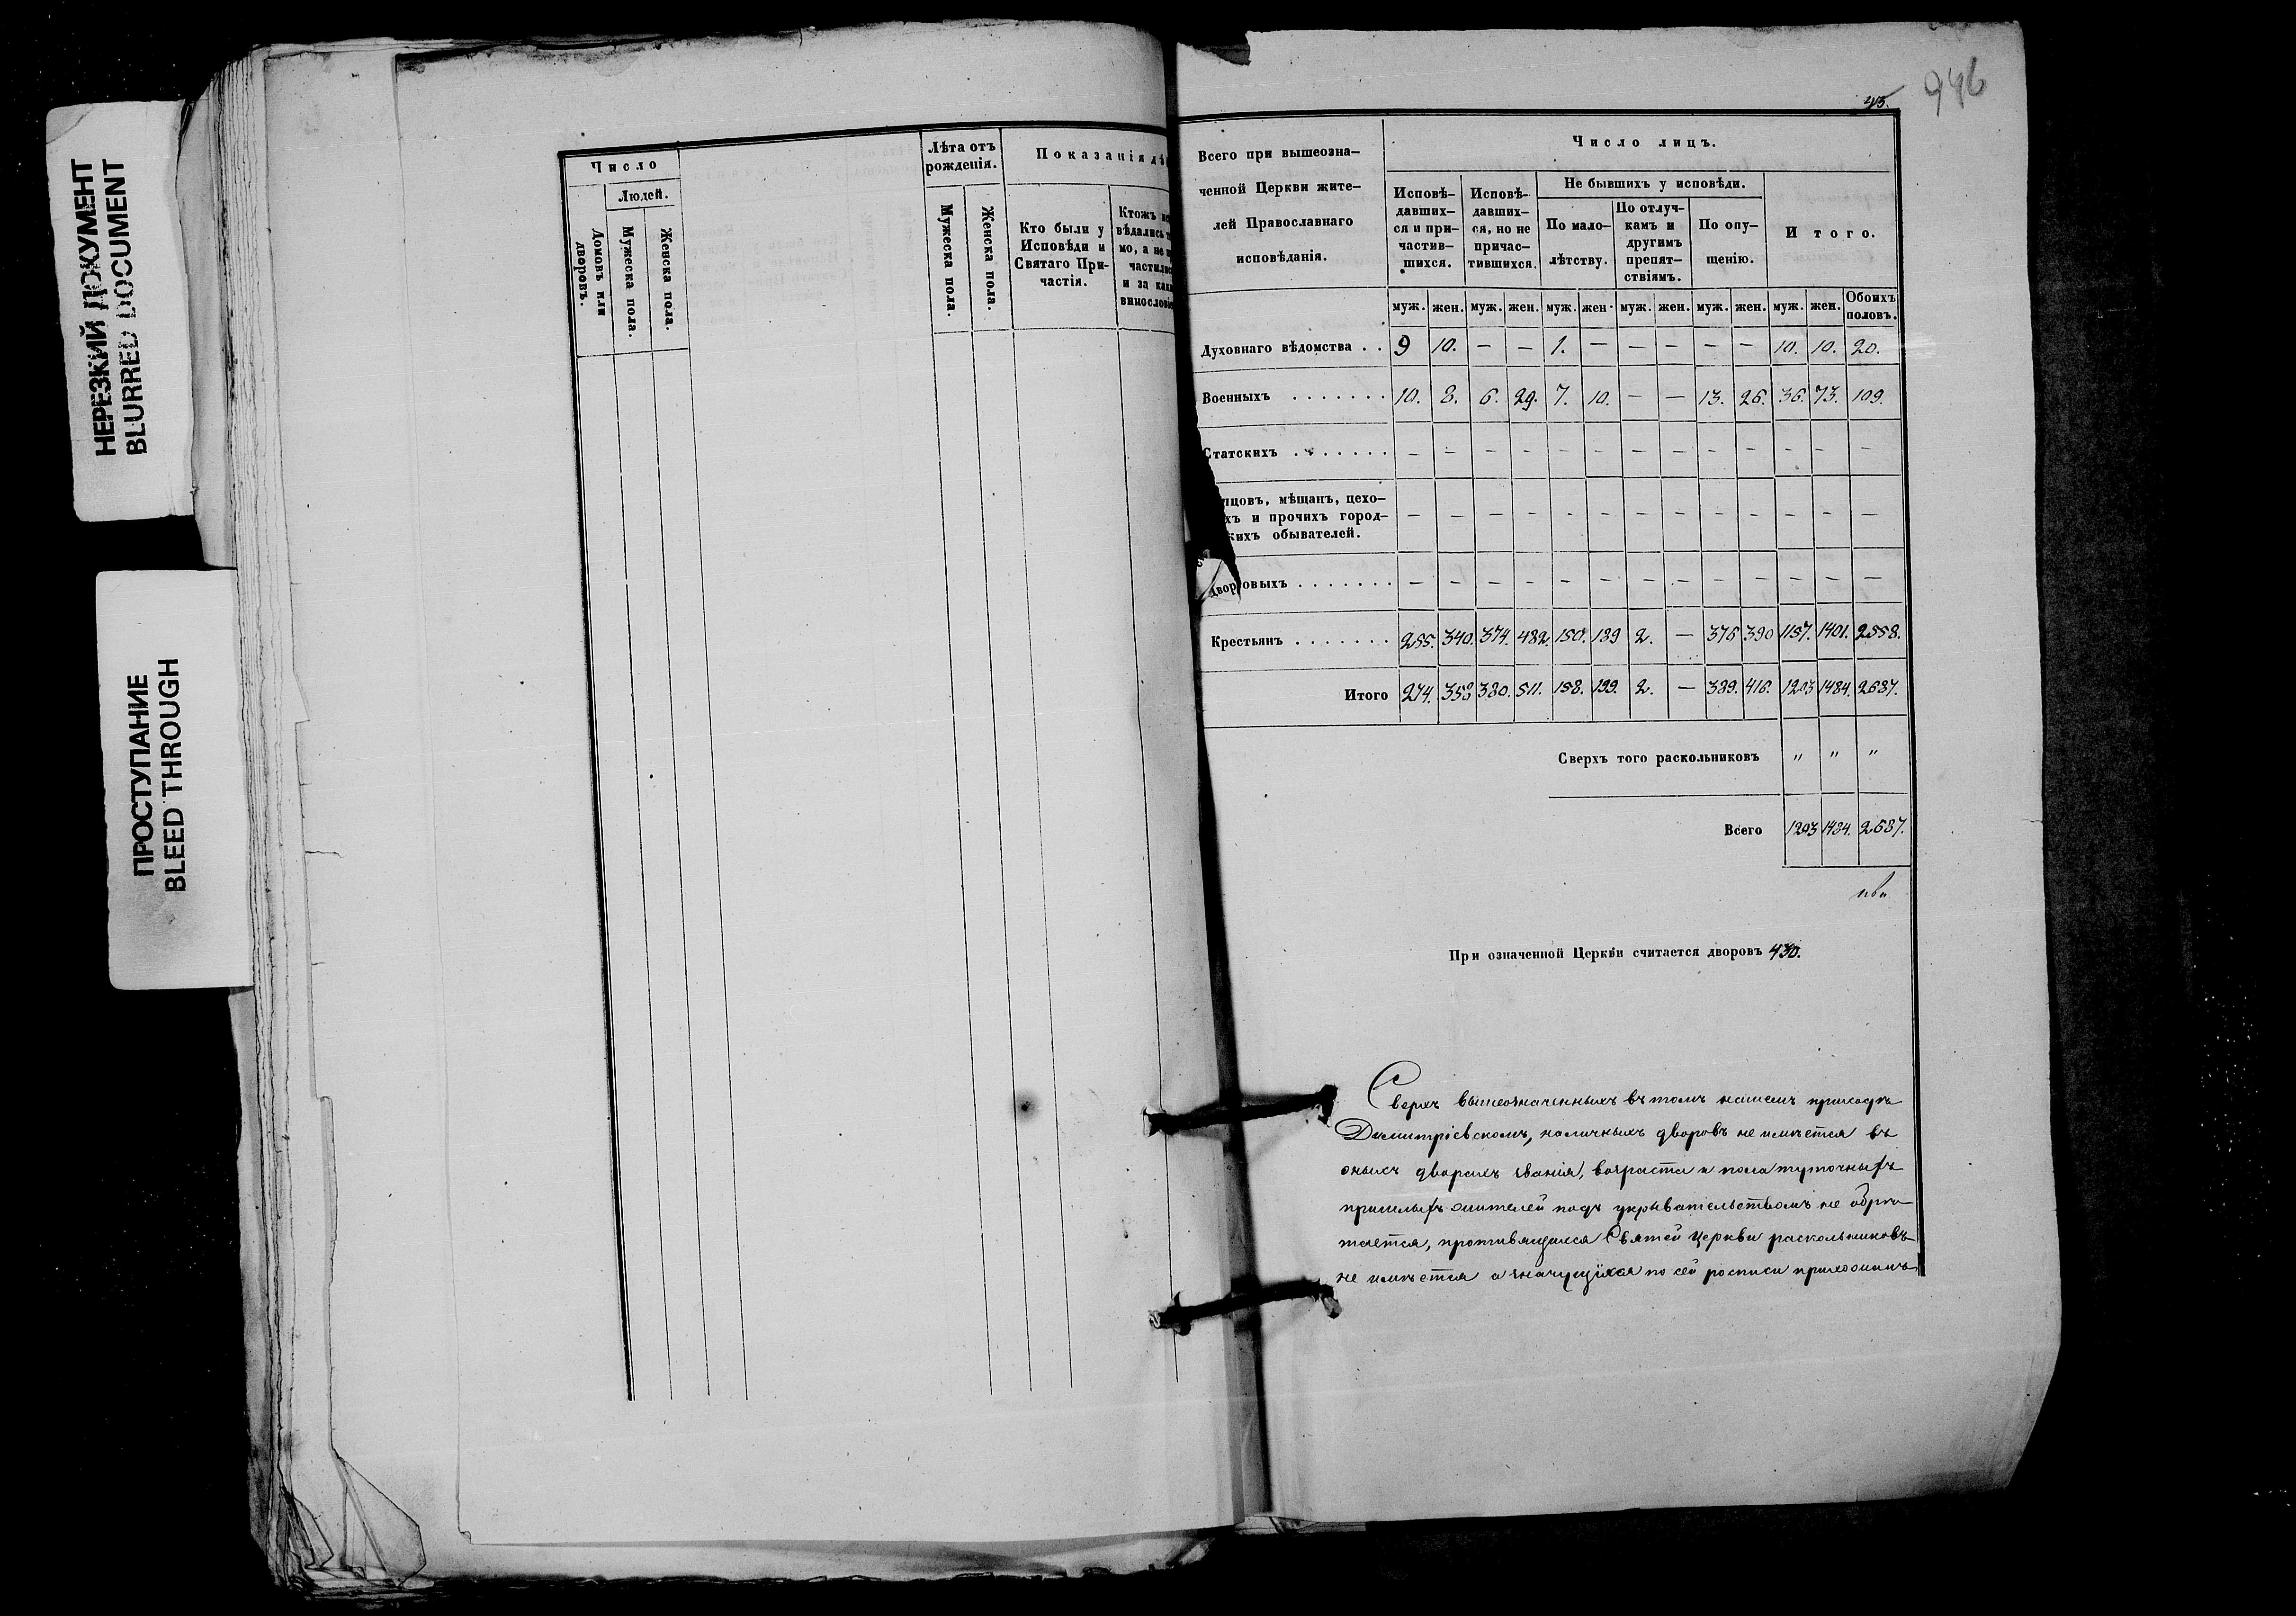 НЕРЕЗКИЙ ДОКУМЕНТ
BLURRED DOCUMENT
ПРОСТУПАНИЕ
BLEED THROUGH
Число
Людей.
Домовъ или дворовъ.
Мужеска пола.
Женска пола.
Лѣта отъ
рожденія.
Мужеска пола.
Женска пола.
Показанія
Кто были у
Исповѣди и
Святаго При-
частія.
Ктожъ
вѣдались
мо, а не
частили
и за
винословіе
946
Всего при вышеозна-
ченной Церкви жите-
лей Православнаго
исповѣданія.
Число лицъ.
Исповѣ-
давших-
ся и при-
частив-
шихся.
Исповѣ-
давших-
ся, но не
причас-
тившихся.
Не бывшихъ у исповѣди.
По мало-
лѣтству.
По отлуч-
камъ и
другимъ
препят-
ствіямъ.
По опу-
щенію.
Итого.
муж. жен. муж. жен. муж. жен. муж. жен. муж. жен. муж. жен. Обоихъ половъ.
Духовнаго вѣдомства . . 9 10. — — 1. — — — — — 10. 10. 20.
Военныхъ . . . . . . . 10. 8. 6. 29. 7. 10. — — 13. 26. 36. 73. 109.
Статскихъ . . . . . . . — — — — — — — — — — — — —
пцовъ, мѣщанъ, цехо-
хъ и прочихъ город-
кихъ обывателей. — — — — — — — — — — — — —
Дворовыхъ . . . . . . . — — — — — — — — — — — — —
Крестьянъ . . . . . . . 255. 340. 374. 482. 150. 189 2. — 376 390 1157. 1401. 2558.
Итого 274. 358 380. 511. 158. 199. 2. — 389. 416. 1203 1484. 2687.
Сверхъ того раскольниковъ " " "
Всего 1203 1484. 2687.
При означенной Церкви считается дворовъ 430.
Сверхъ вышеозначенныхъ въ томъ нашемъ приходѣ
Димитріевскомъ, наличныхъ дворовъ не имѣется въ
оныхъ дворахъ званія, возраста и пола
пришлыхъ жителей подъ укрывательствомъ не обрѣ-
тается, противящихся Святей Церкви раскольниковъ
не имѣется а значущіхся по сей росписи прихожанъ